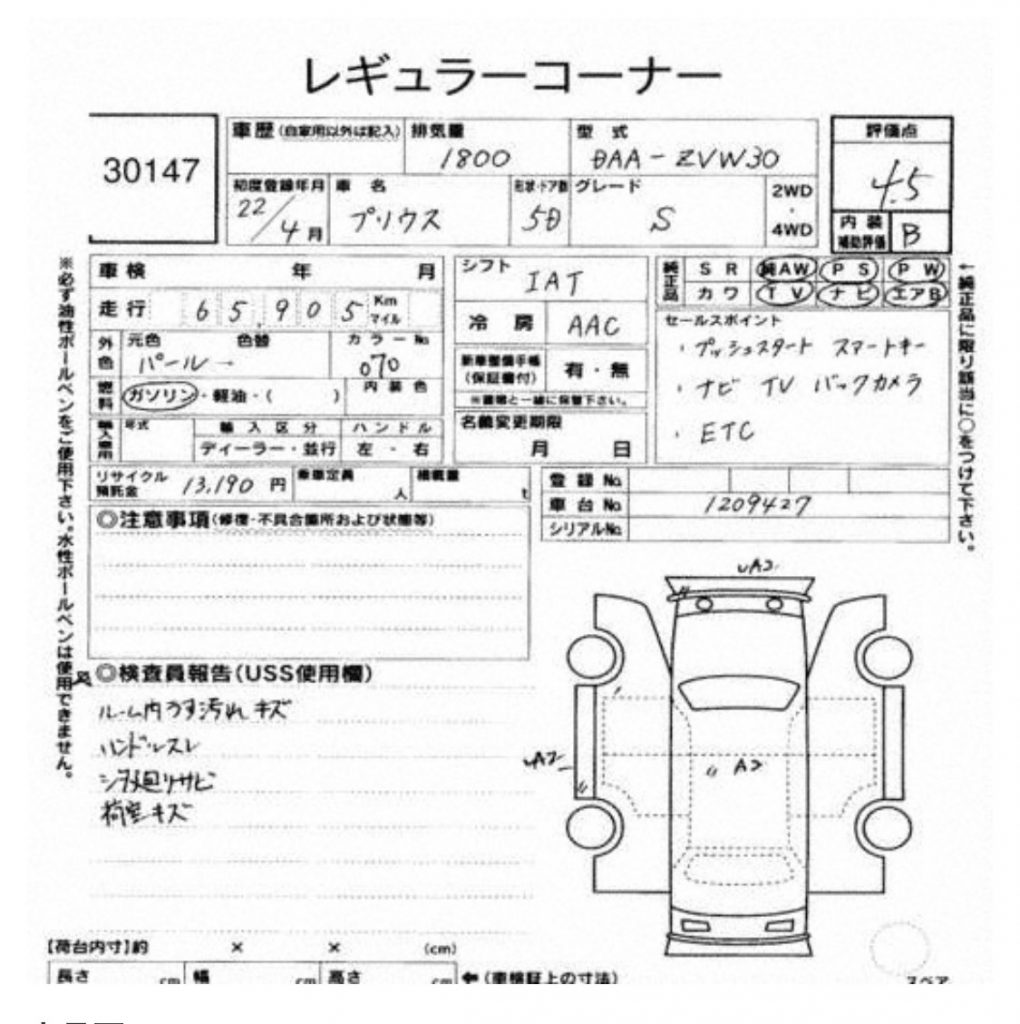 レギュラーコーナー
30147
車歴(自家用以外は記入)
排気量
1800
型 式
DAA-ZVW30
評価点
4.5
初度登録年月
22/4月
車 名
プリウス
形状・ドア数
5D
グレード
S
2WD
・
4WD
内装補助評価
B
※必ず油性ボールペンをご使用下さい。水性ボールペンは使用できません。
車検 年 月
走行 65,905 Km マイル
外色
元色 色替
パール→
カラーNo
070
燃料
ガソリン・軽油・( )
内装色
輸入車用
年式
輸入区分
ディーラー・並行
ハンドル
左 - 右
リサイクル預託金
13,190円
乗車定員
人
積載量
t
シフト
IAT
冷房
AAC
新車整備手帳
(保証書付)
有・無
※書類と一緒に保管下さい。
名義変更期限
月 日
純正品
SR 純AW PS PW
カワ TV ナビ エアB
セールスポイント
・プッシュスタート スマートキー
・ナビ TV バックカメラ
・ETC
←純正品に限り該当に○をつけて下さい。
登録No
車台No
1209427
シリアルNo
◎注意事項(修復・不具合箇所および状態等)
◎検査員報告(USS使用欄)
ルーム内うす汚れ キズ
ハンドルスレ
シタ廻りサビ
荷室キズ
A2
A2
A2
【荷台内寸】約 × × (cm)
長さ cm 幅 cm 高さ cm
←(車検証上の寸法)
スペア